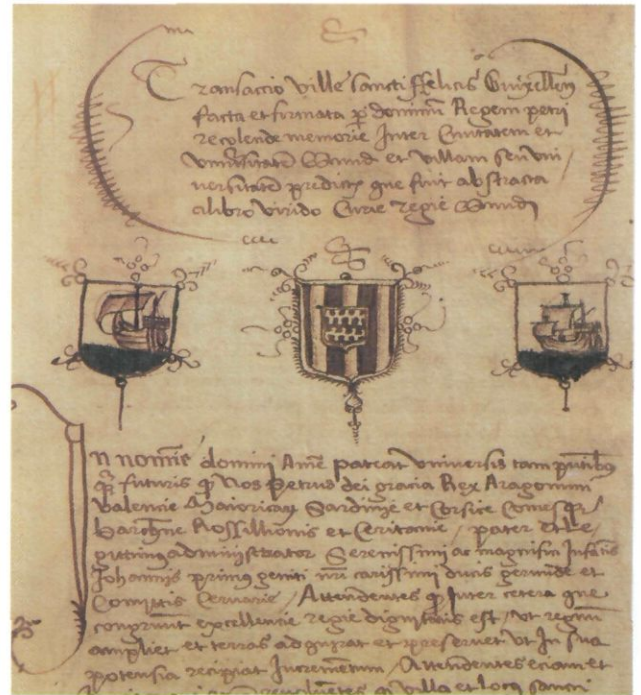 Transaccio ville sancti ffelicis Guixellen̄
facta et formata p̱ dominū Regem petrū
recolende memorie Inter Civitatem et
universitatē Gerunde et villam seu uni
versitatē predictā que fuit abstracta
a libro viridi Curie regie Gerunde
In nomīe domini Amē pateat universis tam pn̄tibus
q̱ futuris q̱ Nos Petrus dei gracia Rex Aragonum
Valencie Maioricaꝝ Sardinie et Corsice Comesq̱
barchn̄e Rossillionis et Ceritanie / pater et le
gittimus administrator Serenissimi ac magnifici Infātis
Johannis primogeniti nr̄i carissimi ducis gerunde et
Comitis Cervarie / Attendentes q̱ Inter cetera que
congruunt excellencie regie dignitatis est / ut regnū
ampliet et terras adquirat et preservet ut In sua
potensia recipiat Incrementum / Attendentes eciam et
q̱ villa et locꝯ sancti